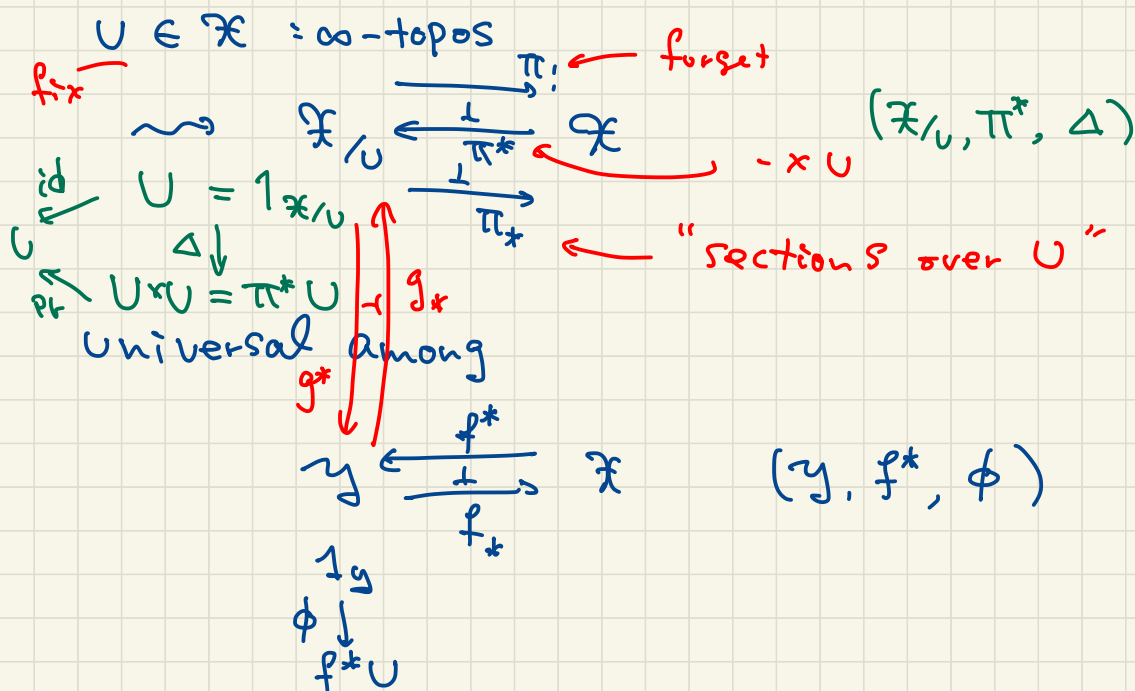 U ∈ 𝒳 : ∞-topos
fix
π! ← forget
⇝ 𝒳/U ⊥ 𝒳 (𝒳/U, π*, Δ)
π* - × U
⊥
π* "sections over U"
id U = 1𝒳/U
U Δ ↓
pr U×U = π*U
⊣ g*
universal among
g*
f*
𝒴 ⊥ 𝒳 (𝒴, f*, φ)
f*
1𝒴
φ ↓
f*U